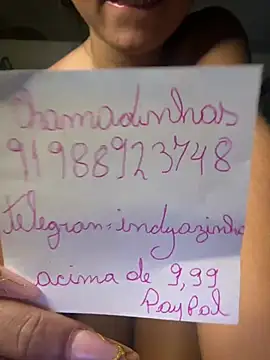 chamadinhas
91988923748
telegran=indyazinha
acima de 9,99
PayPal